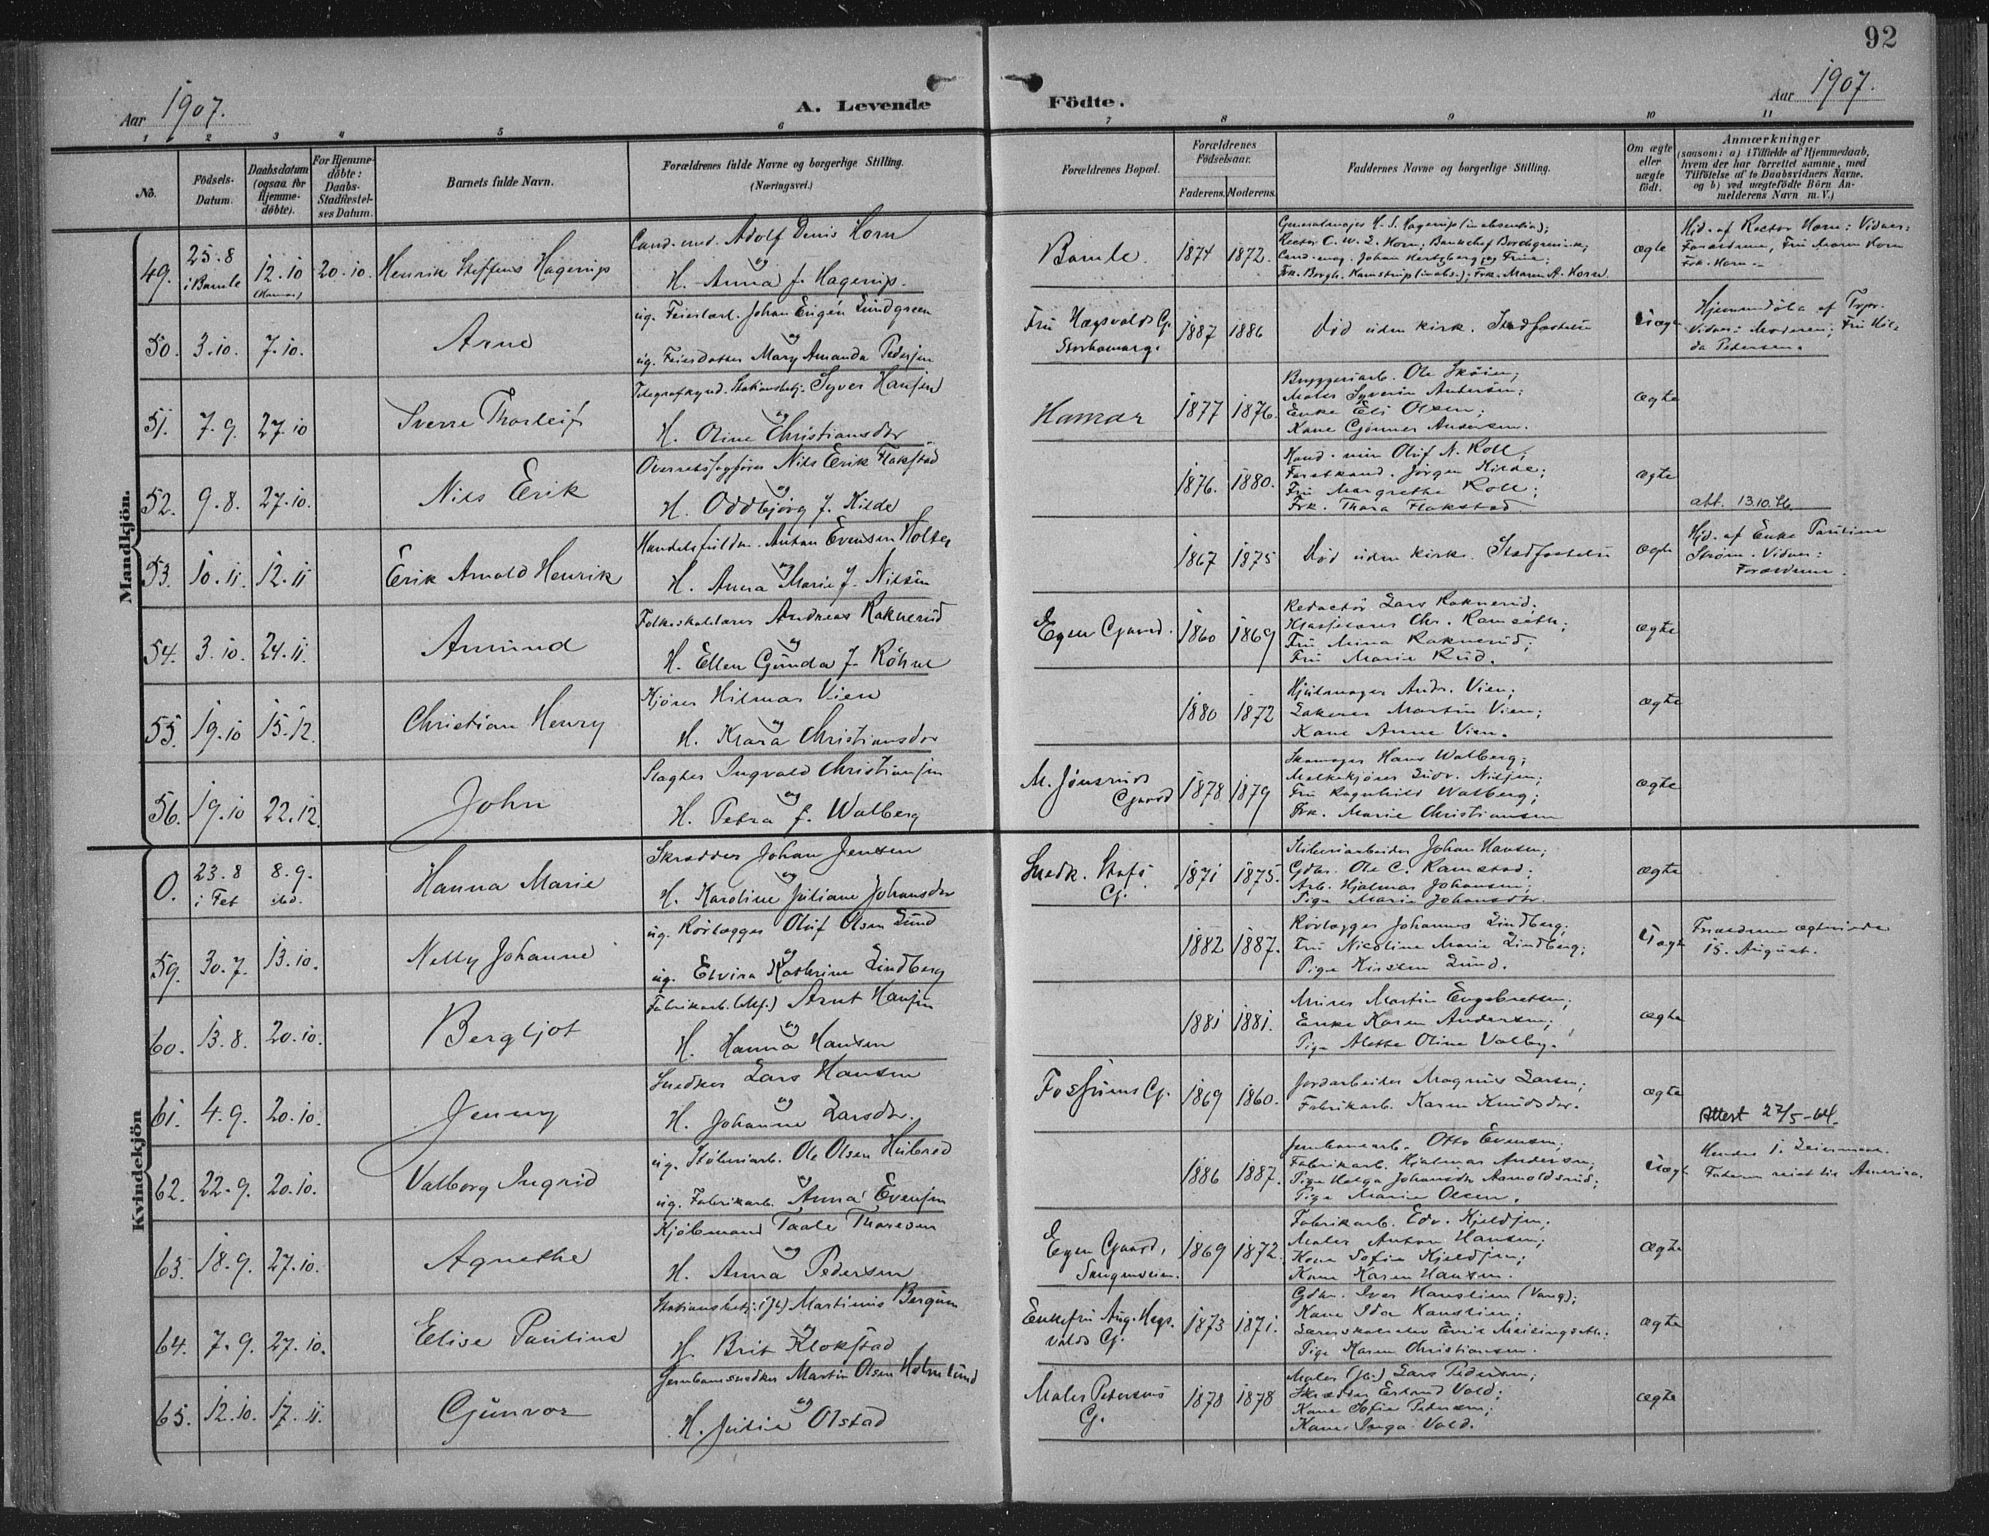 92
Aar 1907.
A. Levende Födte.
Aar 1907.
1 2 3 4 5 6 7 8 9 10 11
No.
Födsels-Datum.
Daabsdatum (ogsaa for Hjemme-döbte).
For Hjemme-döbte: Daabs-Stadfæstel-ses Datum.
Barnets fulde Navn.
Forældrenes fulde Navne og borgerlige Stilling. (Næringsvei.)
Forældrenes Bopæl.
Forældrenes Födselsaar.
Faderens. Moderens.
Faddernes Navne og borgerlige Stilling.
Om ægte eller uægte födt.
Anmærkninger
(saasom: a) i Tilfælde af Hjemmedaab, hvem der har forrettet samme, med Tilföielse af to Daabsvidners Navne, og b) ved uægtefödte Börn An-melderens Navn m. V.)
Mandkjön.
49. 25.8 i Bamle 12.10 (Hamar) 20.10. Henrik Steffens Hagerup
Cand. med. Adolf Denis Horn
og
H. Anna f. Hagerup.
Bamle 1874 1872.
Rector C. W. L. Horn; Bankchef Borchgrevink;
Cand. mag. Johan Hertzberg og Frue;
ægte
Hjd. af Rector Horn: Vidner:
Forældrene, Frk. Maren Horn
50. 3.10. 7.10. Arne
ug. Feierlærl. Johan Eugén Lundgreen
og
ug. Feierdatter Mary Amanda Pedersen
Fru Hægsvolds G. Storhamarg. 1887 1886
død uden kirk. Stadfæstelse
Uægte
Vidner: Moderen; Fru Hil-
da Pedersen.
51. 7.9. 27.10 Sverre Thorleif
Telegrafkynd. Stationsbetj. Syver Hansen
og
H. Oline Christiansdr
Hamar 1877 1876.
Bryggeriarb. Ole Skøien;
Maler Syverin Andersen;
Enke Eli Olsen;
Kone Gjønner Andersen.
ægte
52. 9.8. 27.10. Nils Erik
Overretssagfører Nils Erik Flakstad
og
H. Oddbjørg f. Kilde
1876. 1880.
Kand. min Oluf N. Roll;
Forstkand. Jørgen Kilde;
Fru Margrethe Roll;
Frk. Thora Flakstad
ægte
att. 13.10.
53. 10.11. 12.11 Erik Arnold Henrik
Handelsfuldm. Anton Evensen Holter
og
H. Anna Marie f. Nilsen
1867 1875
død uden kirk. Stadfæstelse
ægte
Hjd. af Enke Pauline
Strøm. Vidner:
Forældrene.
54. 3.10. 24.11. Amund
Folkeskolelærer Andreas Raknerud
og
H. Ellen Gunda f. Røhne
Egen Gaard. 1860 1869
Redactør Lars Raknerud;
Klasselærer Chr. Ramseth;
Fru Mina Raknerud;
Fru Marie Rud.
ægte
55. 19.10 15.12. Christian Henry
Kjører Hilmar Vien
og
H. Klara Christiansdr
1880 1872
Hjulmager Andr. Vien;
Lakerer Martin Vien;
Kone Anne Vien.
ægte
56. 19.10 22.12. John
Slagter Ingvald Christiansen
og
H. Petra f. Walberg
M. Jønsruds Gaard 1878 1879
Skomager Hans Walberg;
Melkekjører Ludv. Nilsen;
Fru Ragnhild Walberg;
Frk. Marie Christiansen
ægte
Kvindekjön
0. 23.8 i Fet 8.9. ibd. Hanna Marie
Skrædder Johan Jensen
og
H. Karoline Juliane Johansdr
Snedk. Stafs G. 1871 1875.
Støberiarbeider Johan Hansen;
Gdbr. Ole C. Ramstad;
Arb. Hjalmar Johansen;
Pige Marie Johansdr.
ægte
59. 30.7. 13.10. Nelly Johanne
ug. Rørlægger Oluf Olsen Lund
og
ug. Elvira Kathrine Lindberg
1882 1887.
Rørlægger Johannes Lindberg;
Fru Nicoline Marie Lindberg;
Pige Kirsten Lund.
Uægte
Forældrene ægteviede
15. August.
60. 13.8. 20.10. Bergljot
Fabrikarb. Arnt Hansen
og
H. Hanna Hansen
1881 1881.
Murer Martin Engebretsen;
Enke Karen Andersen;
Pige Alette Oline Valby.
ægte
61. 4.9. 20.10. Jenny
Snedker Lars Hansen
og
H. Johanne Larsdr.
Fossums G. 1869 1860.
Jordarbeider Magnus Larsen;
Fabrikarb. Karen Knudsdr.
ægte
Attest 27/5-64.
62. 22.9. 20.10. Valborg Ingrid
ug. Støberiarb. Ole Olsen Hulbred
og
ug. Fabrikarb. Anna Evensen
1886 1887.
Jernbanearb. Otto Evensen;
Fabrikarb. Hjalmar Andersen;
Pige Helga Johansdr Aamoldsrud;
Pige Marie Olsen.
Uægte
Hendes 1. Leiermaal.
Faderen reist til Amerika.
63. 18.9. 27.10. Agnethe
Kjøbmand Taale Thoresen
og
H. Anna Pedersen
Egen Gaard, Vangsveien. 1869 1872.
Fabrikarb. Edv. Kjeldsen;
Maler Anton Hansen;
Kone Sofie Kjeldsen;
Kone Karen Hansen.
ægte
64. 7.9. 27.10. Elise Pauline
Stationsbetj. (Jb) Martinus Bergum
og
H. Brit Klokstad
Enkefru Aug. Hægs-volds G. 1873 1871.
Gdbr. Iver Hanslien (Vang);
Kone Ida Hanslien;
Pige Karen Christiansen.
ægte
65. 12.10. 17.11. Gunvor
Jernbanesnedker Martin Olsen Holmlund
og
H. Julie Olstad
Maler Petersens G. 1878 1878
Maler (Jb.) Lars Pedersen;
Skrædder Erland Vold;
Kone Sofie Pedersen;
Kone Inga Vold.
ægte